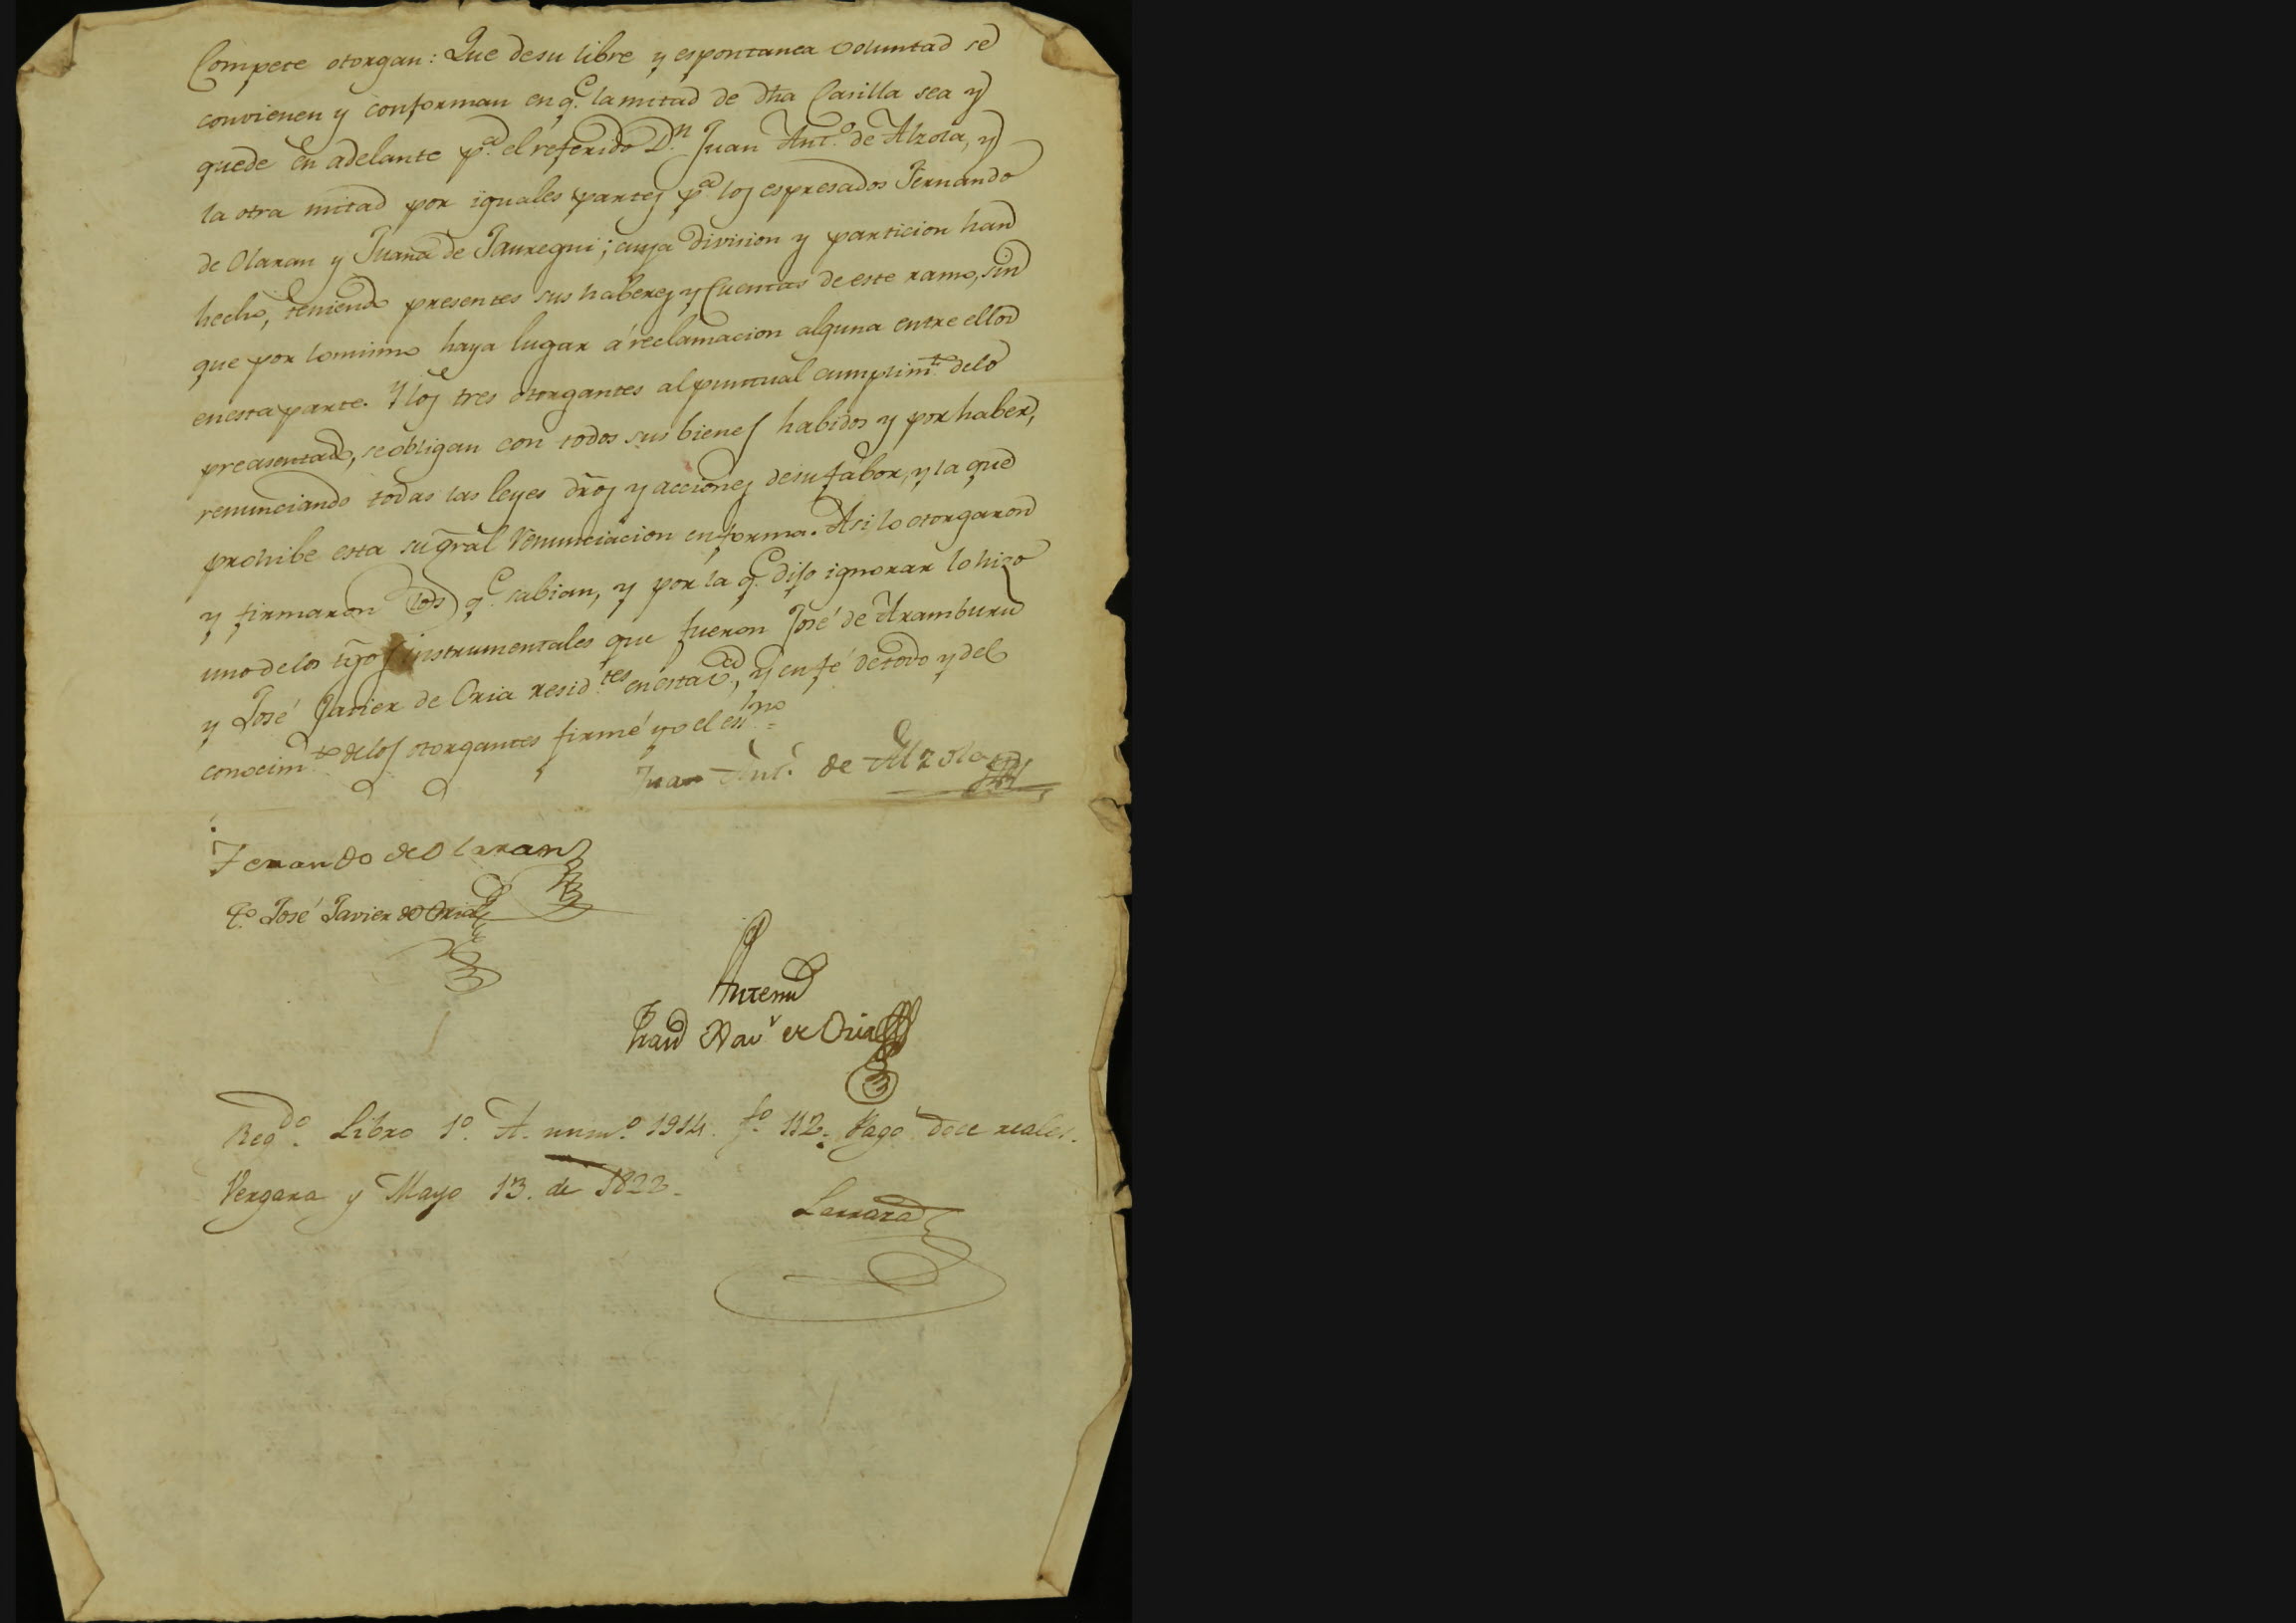 Compete otorgan: Que desu libre y espontanea voluntad se
convienen y conforman en q.e la mitad de dha Casilla sea y
quede en adelante p.a el referido D.n Juan Ant.o de Alzola, y
la otra mitad por iguales partes p.a los espresados Fernando
de Olaran y Juana de Jauregui; cuya division y particion han
hecho, teniendo presentes sus haberes y Cuentas de este ramo, sin
que por lo mismo haya lugar á reclamacion alguna entre ellos
en esta parte. Y los tres otorgantes al puntual cumplim.to delo
preasentado, se obligan con todos sus bienes habidos y por haber,
renunciando todas las leyes dros y acciones desu fabor, y la que
prohibe esta su gral renunciacion en forma. Asi lo otorgaron
y firmaron los q.e sabian, y por la q.e dijo ignorar lo hizo
uno de los tgos instrumentales que fueron José de Aramburu
y José Javier de Oria resid.tes en esta v.a, y en fé de todo y del
conocim.to de los otorgantes firmé yo el es.no =
Juan Ant.o de Alzola
Fernando de Olaran
t.o José Javier de Oria
Antemi
Fran.co Xav.r de Oria
Reg.do Libro 1.o A. num.o 1914. f.o 112. Pagó doce reales.
Vergara y Mayo 13. de 1822.